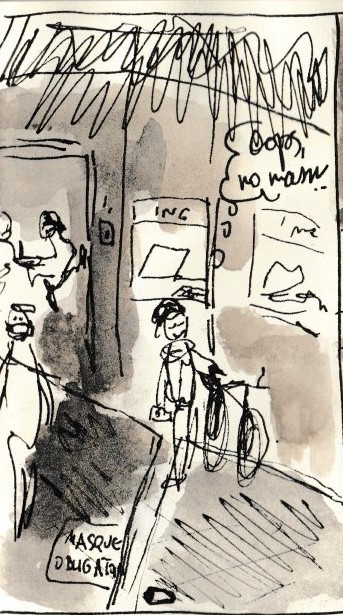 Oops,
no mask..
ING
ing
MASQUE
OBLIGATOI